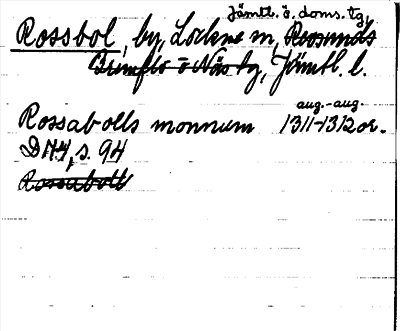 Jämtl. ö. doms. tg,
Rossbol, by, Lockne sn, Revsunds
Brunflo o Näs tg, Jämtl. l.
aug.-aug.
Rossabolls monnum 1311-1312 or.
s. 94
Rossaboll